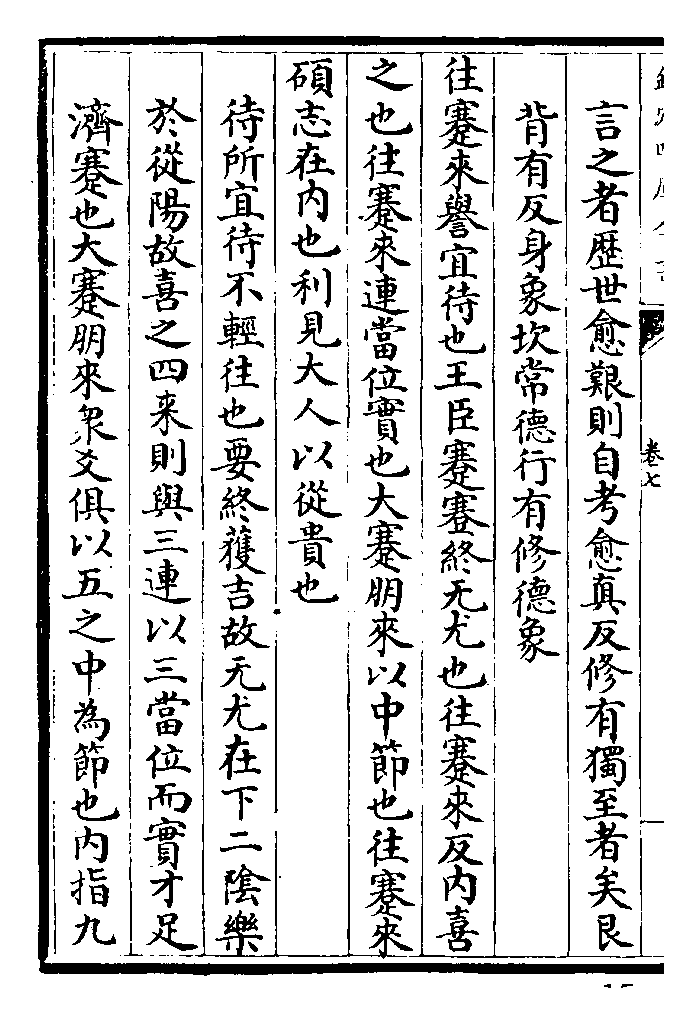 欽定四庫全書
卷七
言之者歷世愈艱則自考愈真反修有獨至者矣艮
背有反身象坎常德行有修德象
往蹇來譽宜待也王臣蹇蹇終无尤也往蹇來反内喜
之也往蹇來連當位實也大蹇朋來以中節也往蹇來
碩志在内也利見大人以從貴也
待所宜待不輕往也要終獲吉故无尤在下二陰樂
於從陽故喜之四来則與三連以三當位而實才足
濟蹇也大蹇朋來衆爻俱以五之中為節也内指九